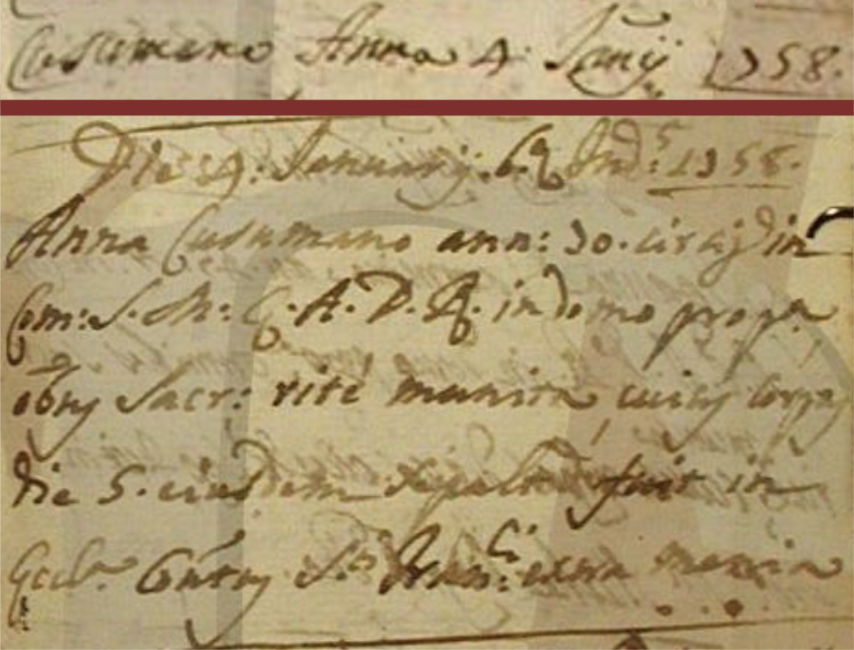 Cusumano Anna 4 Janȳ 1758.
Die 4: Januarij 6ę Indˢ: 1758.
Anna Cusumano ann: 30. circiȷ̄ in
Com: S. M: E. A. D. R. in domo propa
oībꝯ Sacr: rité munita, cuius corpꝯ
die 5. eiusdem sepaltū fuit in
Eccla Contus Sti Franci: extra menia